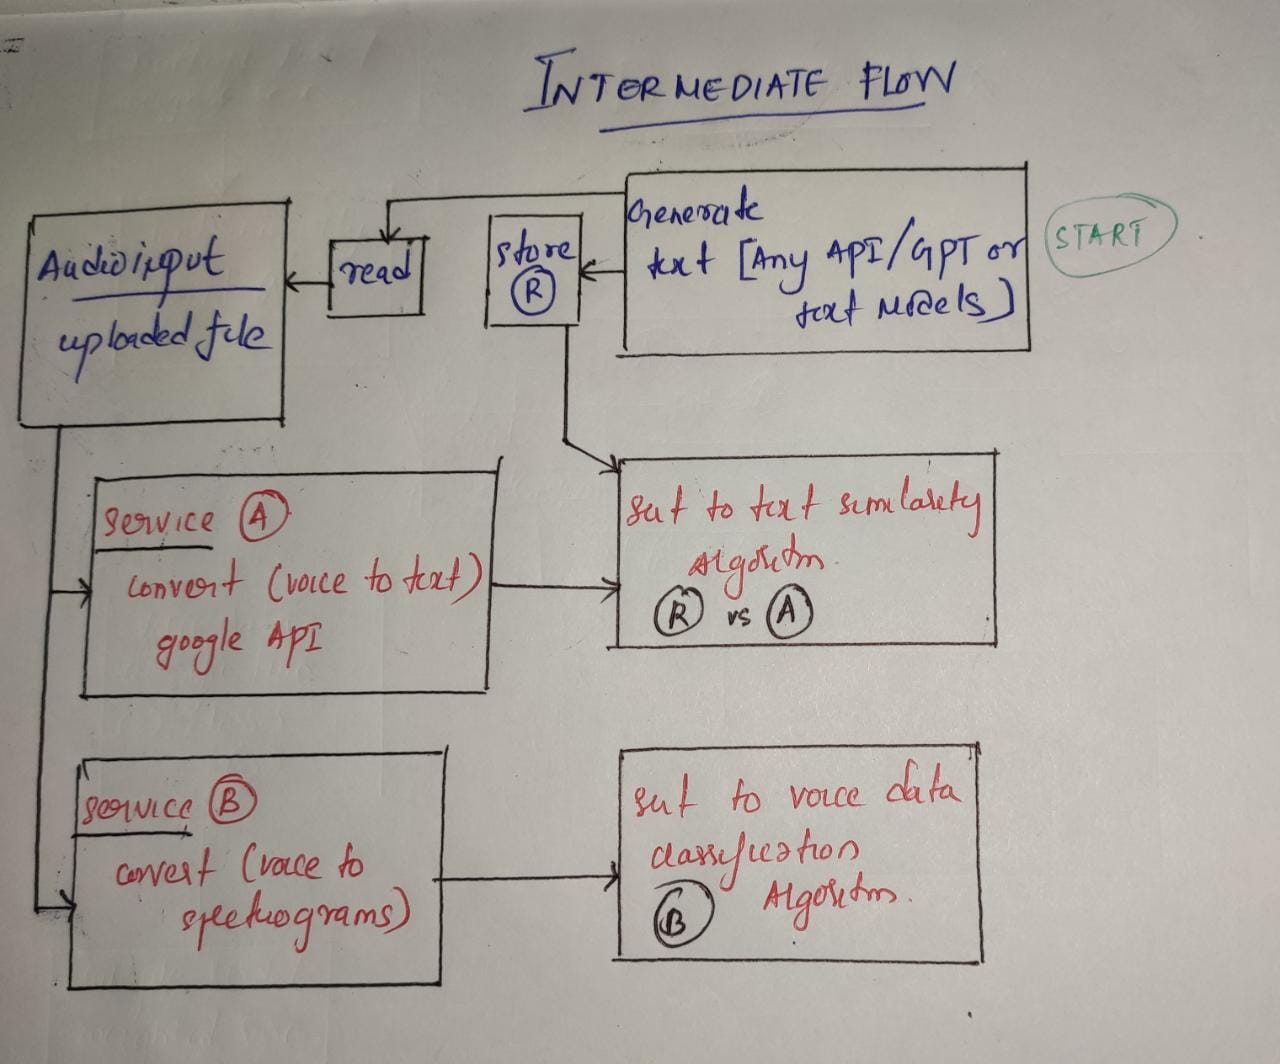 INTERMEDIATE FLOW
Generate
text [Any API/GPT or
text Models]
START
store
R
read
Audio input
uploaded file
service A
convert (voice to text)
google API
sent to text similarity
Algorithm.
R vs A
service B
convert (voice to
spectrograms)
sent to voice data
classification
Algorithm.
B